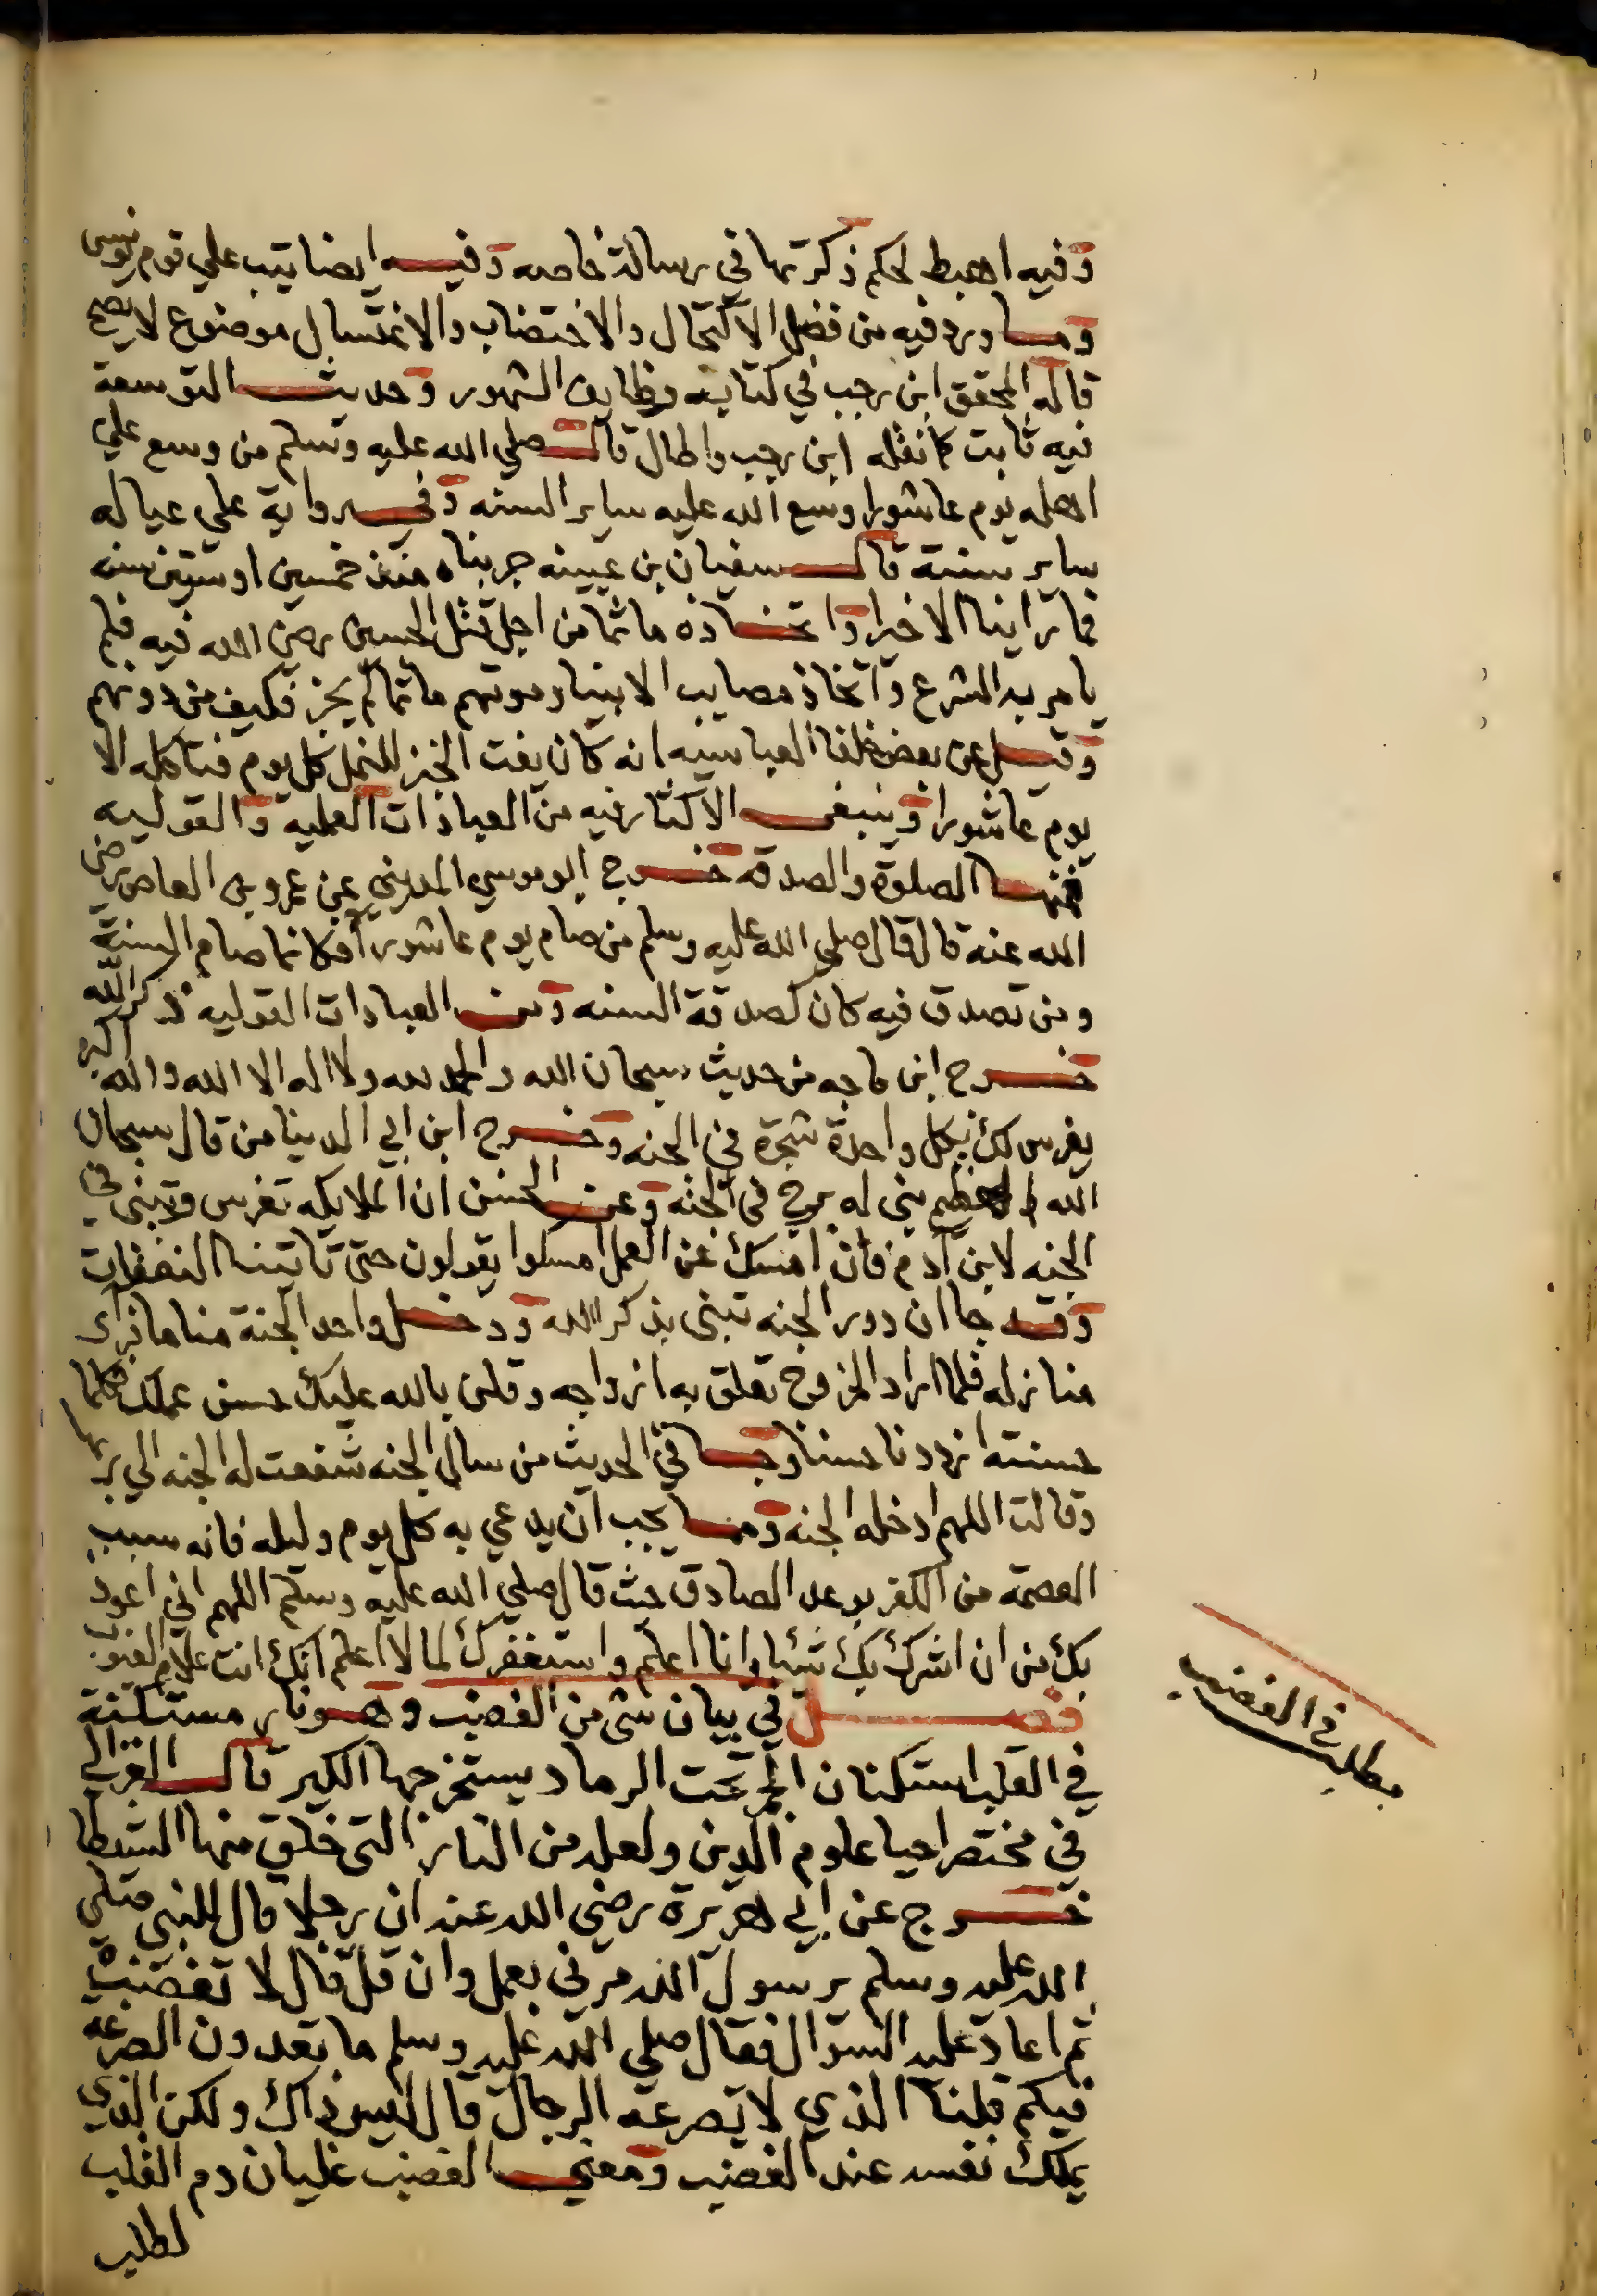 وفيه اهبط لحكم ذكرتها في رسالة خاصه وفيه ايضا تيب علي قوم يونس
وما ورد فيه من فضل الاكتحال والاختضاب والاغتسال موضوع لا يصح
قاله المحقق ابن رجب في كتابه وظايف الشهور وحديث التوسعة
فيه ثابت كما نقله ابن رجب واطال قال صلي الله عليه وسلم من وسع علي
اهله يوم عاشورا وسع الله عليه ساير السنه وفي رواية علي عياله
ساير سنته قال سفيان بن عيينه جربناه منذ خمسين او ستين سنه
فما راينا الا خيرا واتخاذه ماتما من اجل قتل الحسين رضي الله فيه فلم
يامر به الشرع واتخاذ مصايب الانبيا وموتهم ماتما لم يجز فكيف من دونهم
وقيل عن بعض خلفا العباسيه انه كان يفت الخبز للنمل كل يوم فتاكله الا
يوم عاشورا وينبغي الاكثار فيه من العبادات العمليه والقوليه
فمنها الصلوة والصدقه خرج ابو موسي المديني عن عمرو بن العاص رضي
الله عنه قال قال صلي الله عليه وسلم من صام يوم عاشورا فكانما صام السنة
ومن تصدق فيه كان كصدقة السنه ومن العبادات القوليه ذكر الله
خرج ابن ماجه من حديث سبحان الله والحمد لله ولا اله الا الله والله اكبر
يغرس لك بكل واحدة شجرة في الجنه وخرج ابن ابي الدنيا من قال سبحان
الله العظيم بني له برج في الجنه وعن الحسن ان الملايكه تغرس وتبني في
الجنه لابن ادم فان امسك عن العمل امسكوا يقولون حتي تاتينا النفقات
وقد جا ان دور الجنه تبني بذكر الله ودخل واحد الجنة مناما فراي
منازله فلما اراد الخروج تعلق به ازواجه وقلن بالله عليك حسن عملك فكلما
حسنته ازددنا حسنا وجا في الحديث من سال الجنه شفعت له الجنه الي ربها
وقالت اللهم ادخله الجنه ومما يجب ان يدعي به كل يوم وليله فانه سبب
العصمة من الكفر بوعد الصادق حيث قال صلي الله عليه وسلم اللهم اني اعوذ
بك من ان اشرك بك شيئا وانا اعلم واستغفرك لما لا اعلم انك انت علام الغيوب
فصل في بيان شي من الغضب وهو نار مستكنة
في القلب استكنان الجمر تحت الرماد يستخرجها الكبر قال الغزالي
في مختصر احيا علوم الدين ولعله من النار التي خلق منها الشيطا
خرج عن ابي هريرة رضي الله عنه ان رجلا قال للنبي صلي
الله عليه وسلم يرسول الله مرني بعمل وان قل قال لا تغضب
ثم اعاد عليه السوال فقال صلي الله عليه وسلم ما تعدون الصرعه
فيكم قلنا الذي لا تصرعه الرجال قال ليس ذاك ولكن الذي
يملك نفسه عند الغضب ومعني الغضب غليان دم القلب
لطلب
مطلب في الغضب